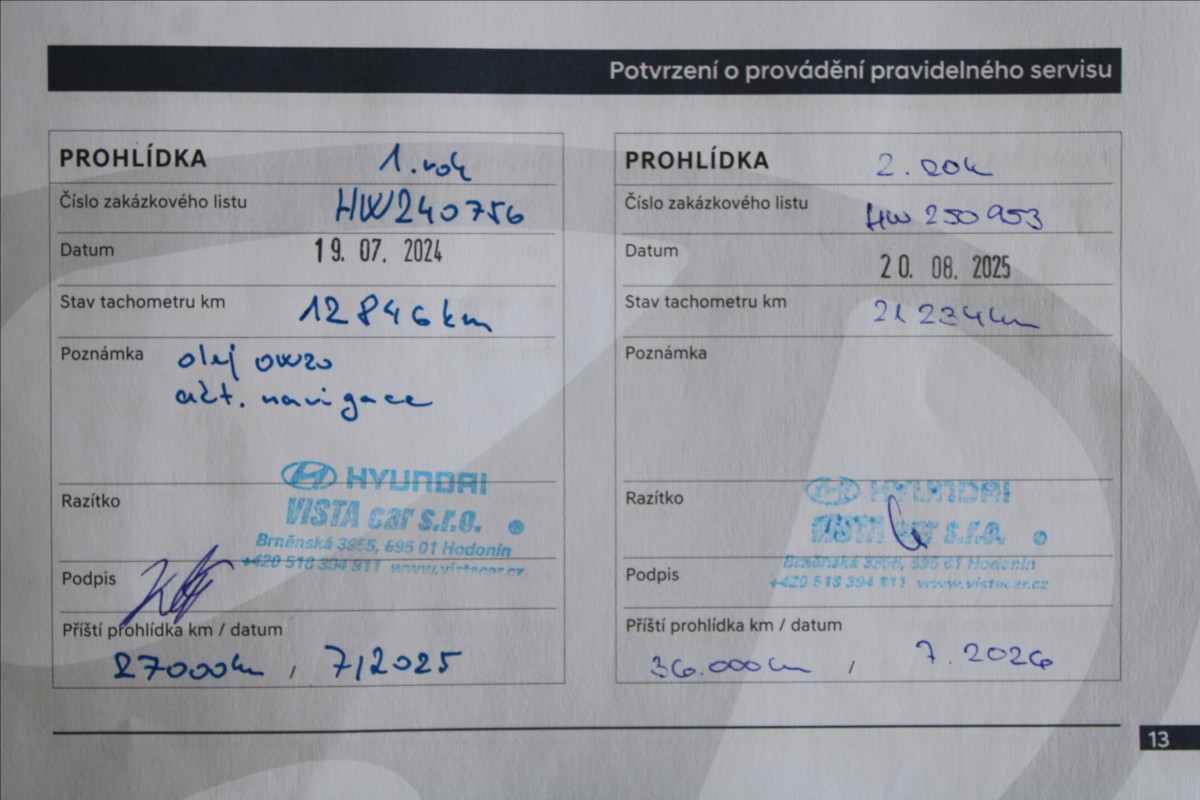 Potvrzení o provádění pravidelného servisu
PROHLÍDKA 1. rok
Číslo zakázkového listu HW240756
Datum 19. 07. 2024
Stav tachometru km 12846km
Poznámka olej 0W20
akt. navigace
Razítko
HYUNDAI
VISTA car s.r.o.
Brněnská 3955, 695 01 Hodonín
+420 518 394 911 www.vistacar.cz
Podpis
Příští prohlídka km / datum
27000km / 7/2025
PROHLÍDKA 2. rok
Číslo zakázkového listu HW250953
Datum 20. 08. 2025
Stav tachometru km 21234km
Poznámka
Razítko
HYUNDAI
VISTA car s.r.o.
Brněnská 3955, 695 01 Hodonín
+420 518 394 911 www.vistacar.cz
Podpis
Příští prohlídka km / datum
36.000km / 7.2026
13